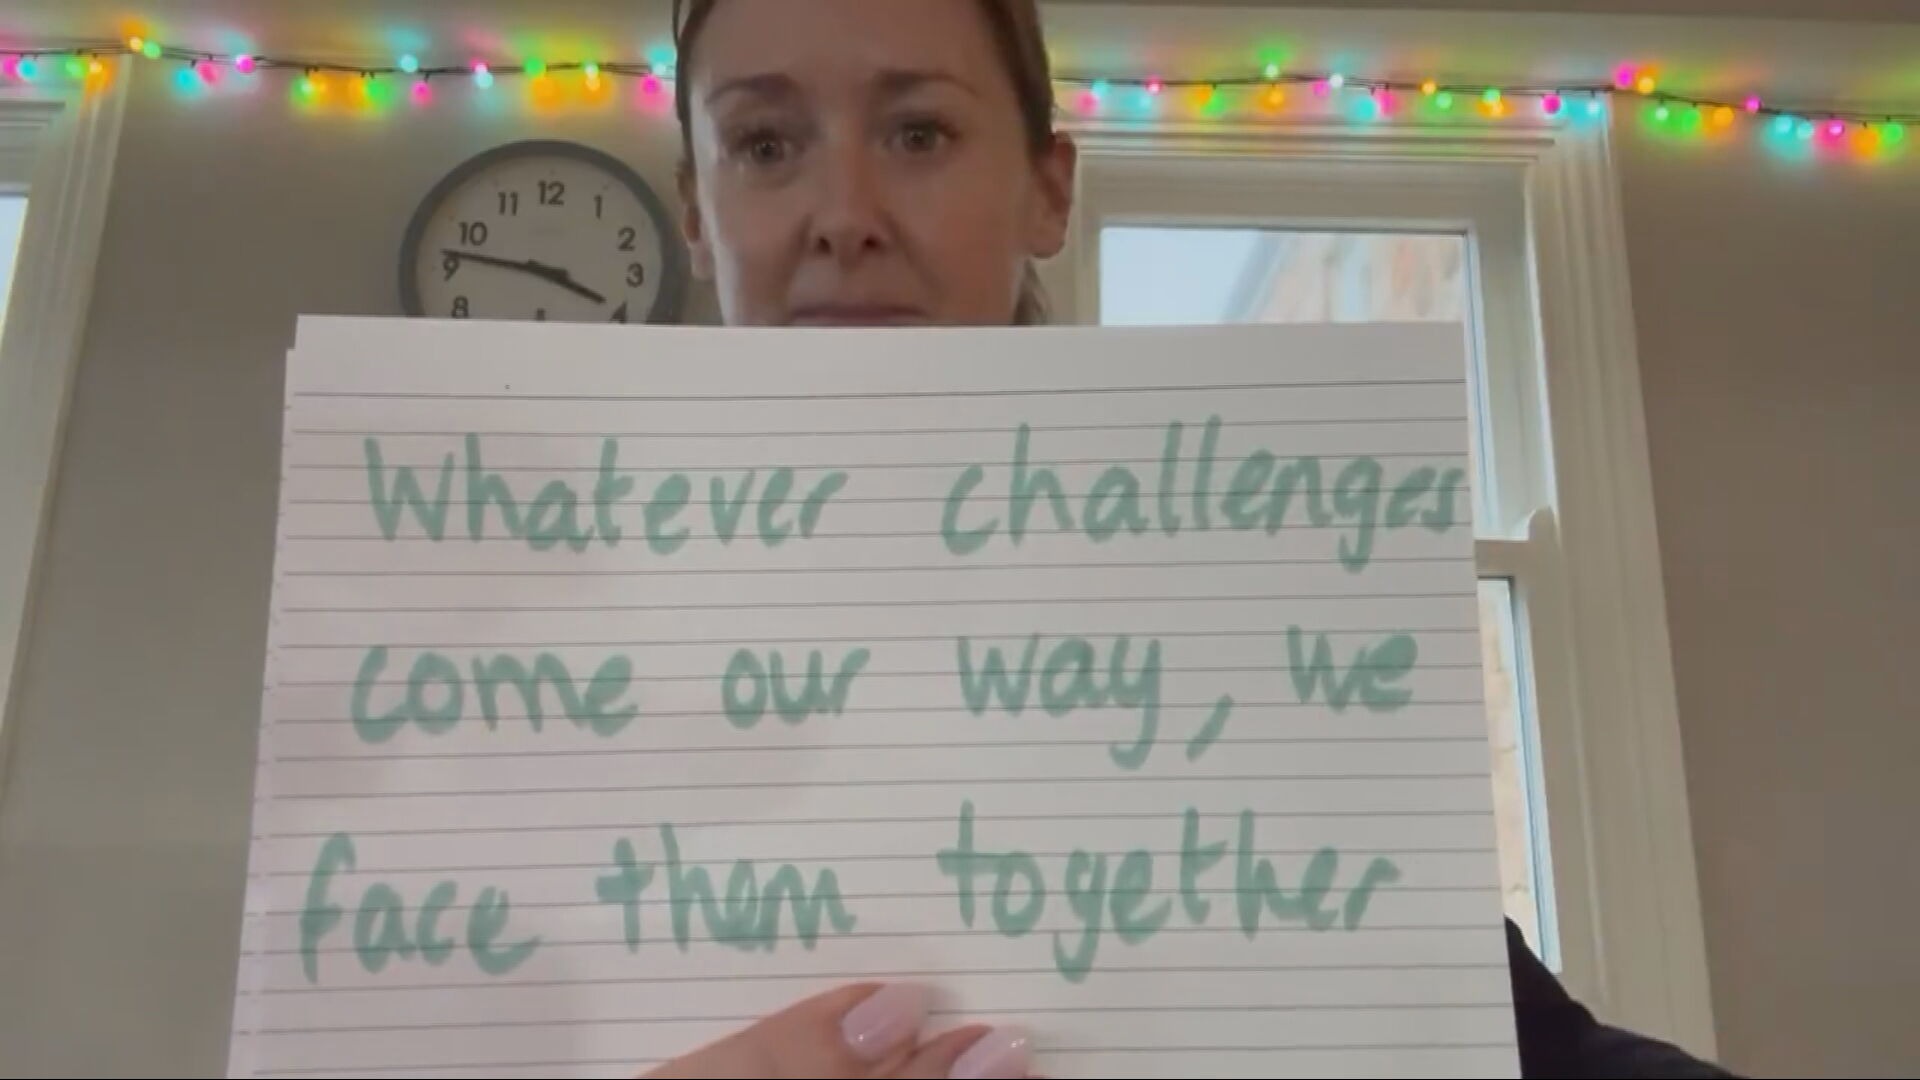 11 12 1
10 2
9 3
8 4
Whatever challenges
come our way, we
face them together